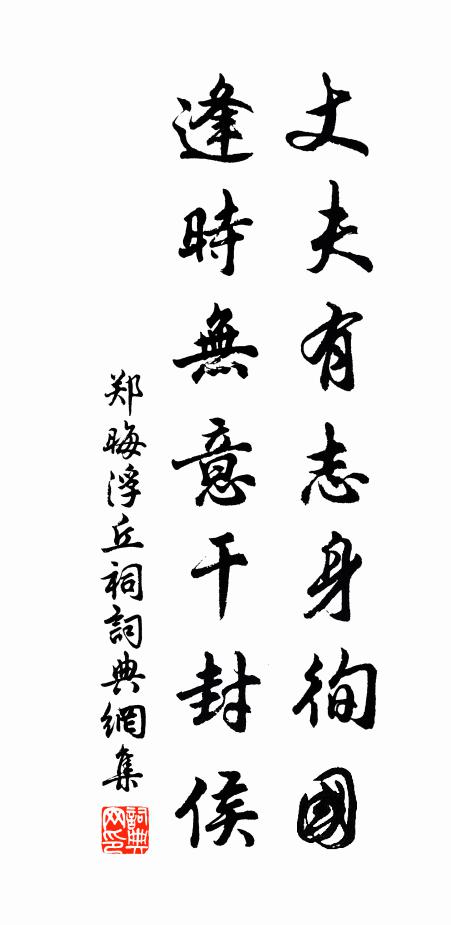 丈夫有志身徇國
逢時無意干封侯
郑晦浮丘祠詞典網集
詞典網印